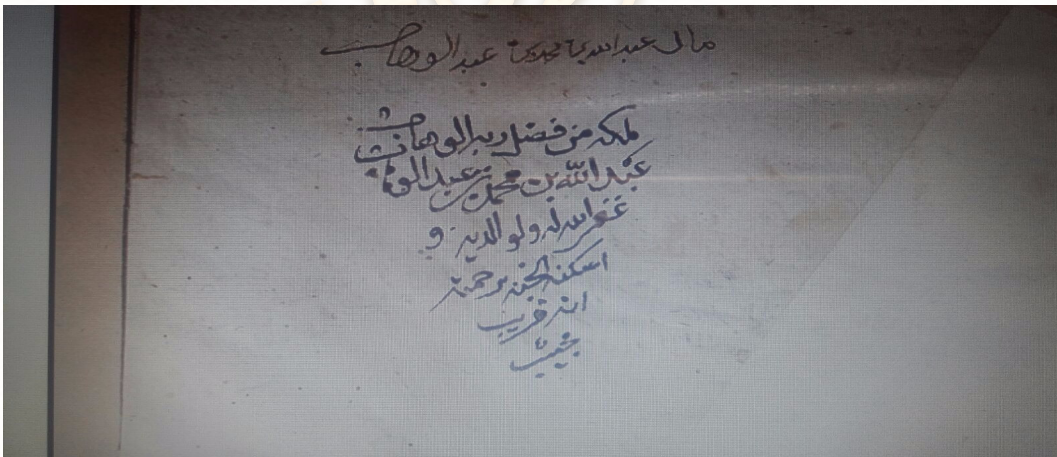 مال عبد الله بن محمد بن عبد الوهاب
ملكه من فضل ربه الوهاب
عبد الله بن محمد بن عبد الوهاب
غفر الله له ولوالديه و
اسكنه الجنه برحمته
انه قريب
مجيب